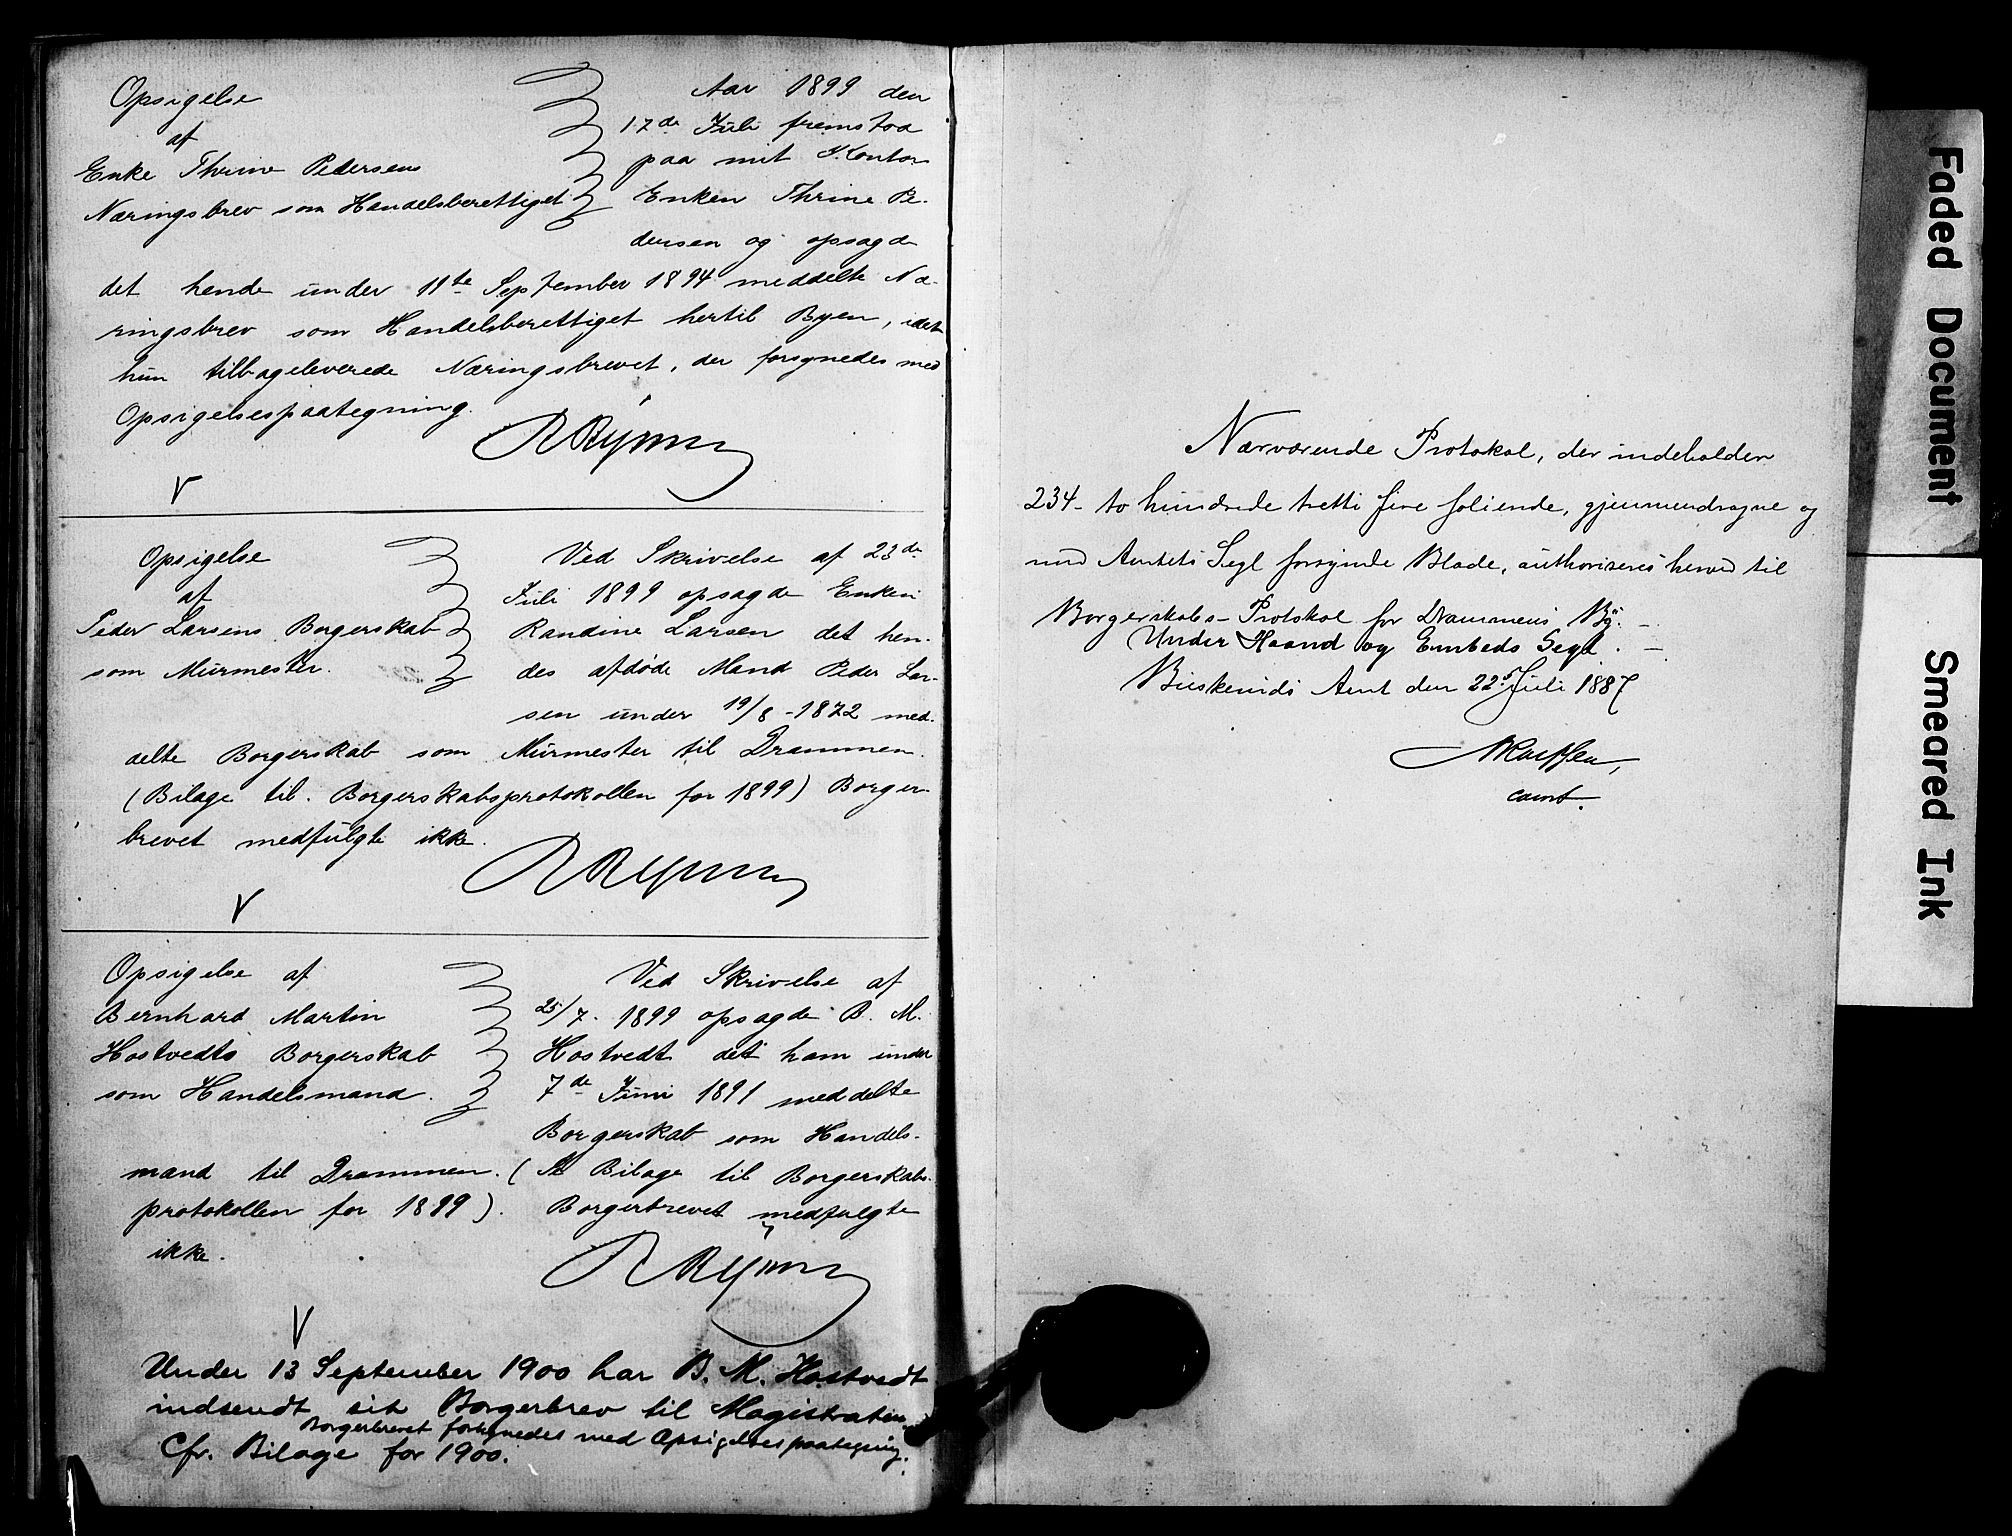 Opsigelse
af
Enke Thrine Pedersens
Næringsbrev som Handelsberettiget
Aar 1899 den
17de Juli fremstod
paa mit Kontor
Enken Thrine Pe-
dersen og opsagde
det hende under 11te September 1894 meddelte Næ-
ringsbrev som Handelsberettiget hertil Byen, idet
hun tilbageleverede Næringsbrevet, der forsynedes med
Opsigelsespaategning.
Opsigelse
af
Peder Larsens Borgerskab
som Murmester.
Ved Skrivelse af 23de
Juli 1899 opsagde Enken
Randine Larsen det hen-
des afdøde Mand Peder Lar-
sen under 19/8 - 1872 med-
delte Borgerskab som Murmester til Drammen.
(Bilage til Borgerskabsprotokollen for 1899) Borger-
brevet medfulgte ikke.
Opsigelse af
Bernhard Martin
Hostvedts Borgerskab
som Handelsmand.
Ved Skrivelse af
25/7. 1899 opsagde B. M.
Hostvedt det ham under
7de Juni 1891 meddelte
Borgerskab som Handels-
mand til Drammen. (Se Bilage til Borgerskabs-
protokollen for 1899). Borgerbrevet medfulgte
ikke.
Under 13 September 1900 har B. M. Hostvedt
indsendt sit Borgerbrev til Magistraten.
Borgerbrevet forsynedes med Opsigelsespaategning.
Cfr. Bilage for 1900.
Nærværende Protokol, der indeholder
234 - to hundrede tretti fire folierede, gjennemdragne og
med Amtets Segl forsynede Blade, authoriseres herved til
Borgerskabs-Protokol for Drammens By. -
Under Haand og Embeds Segl. -
Buskeruds Amt den 22 Juli 1887
const.
Faded Document
Smeared Ink